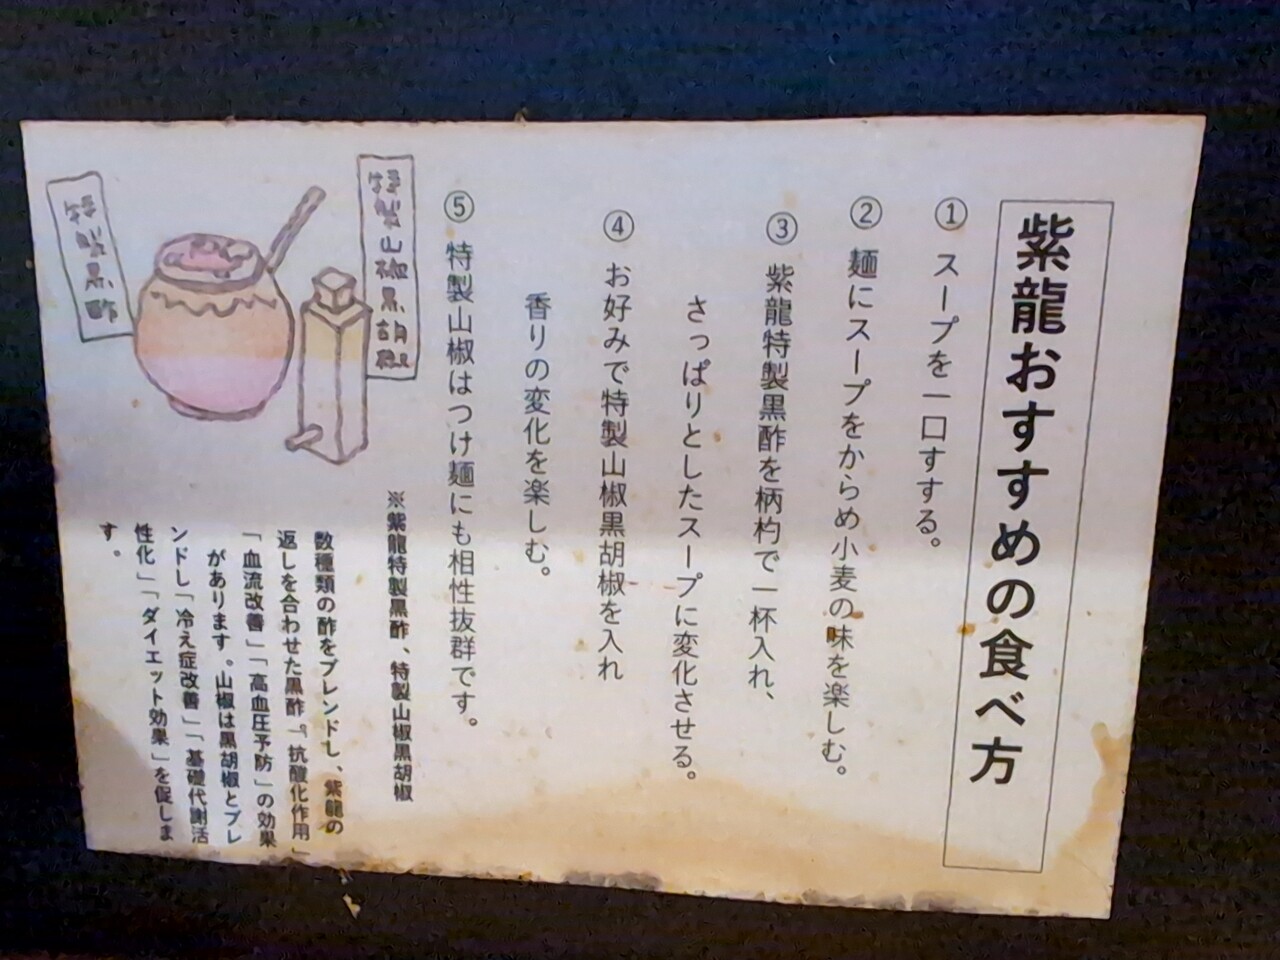 紫龍おすすめの食べ方
① スープを一口すする。
② 麺にスープをからめ小麦の味を楽しむ。
③ 紫龍特製黒酢を柄杓で一杯入れ、
さっぱりとしたスープに変化させる。
④ お好みで特製山椒黒胡椒を入れ
香りの変化を楽しむ。
⑤ 特製山椒はつけ麺にも相性抜群です。
※紫龍特製黒酢、特製山椒黒胡椒
数種類の酢をブレンドし、紫龍の
返しを合わせた黒酢。「抗酸化作用」
「血流改善」「高血圧予防」の効果
があります。山椒は黒胡椒とブレ
ンドし「冷え症改善」「基礎代謝活
性化」「ダイエット効果」を促しま
す。
特製山椒黒胡椒
特製黒酢